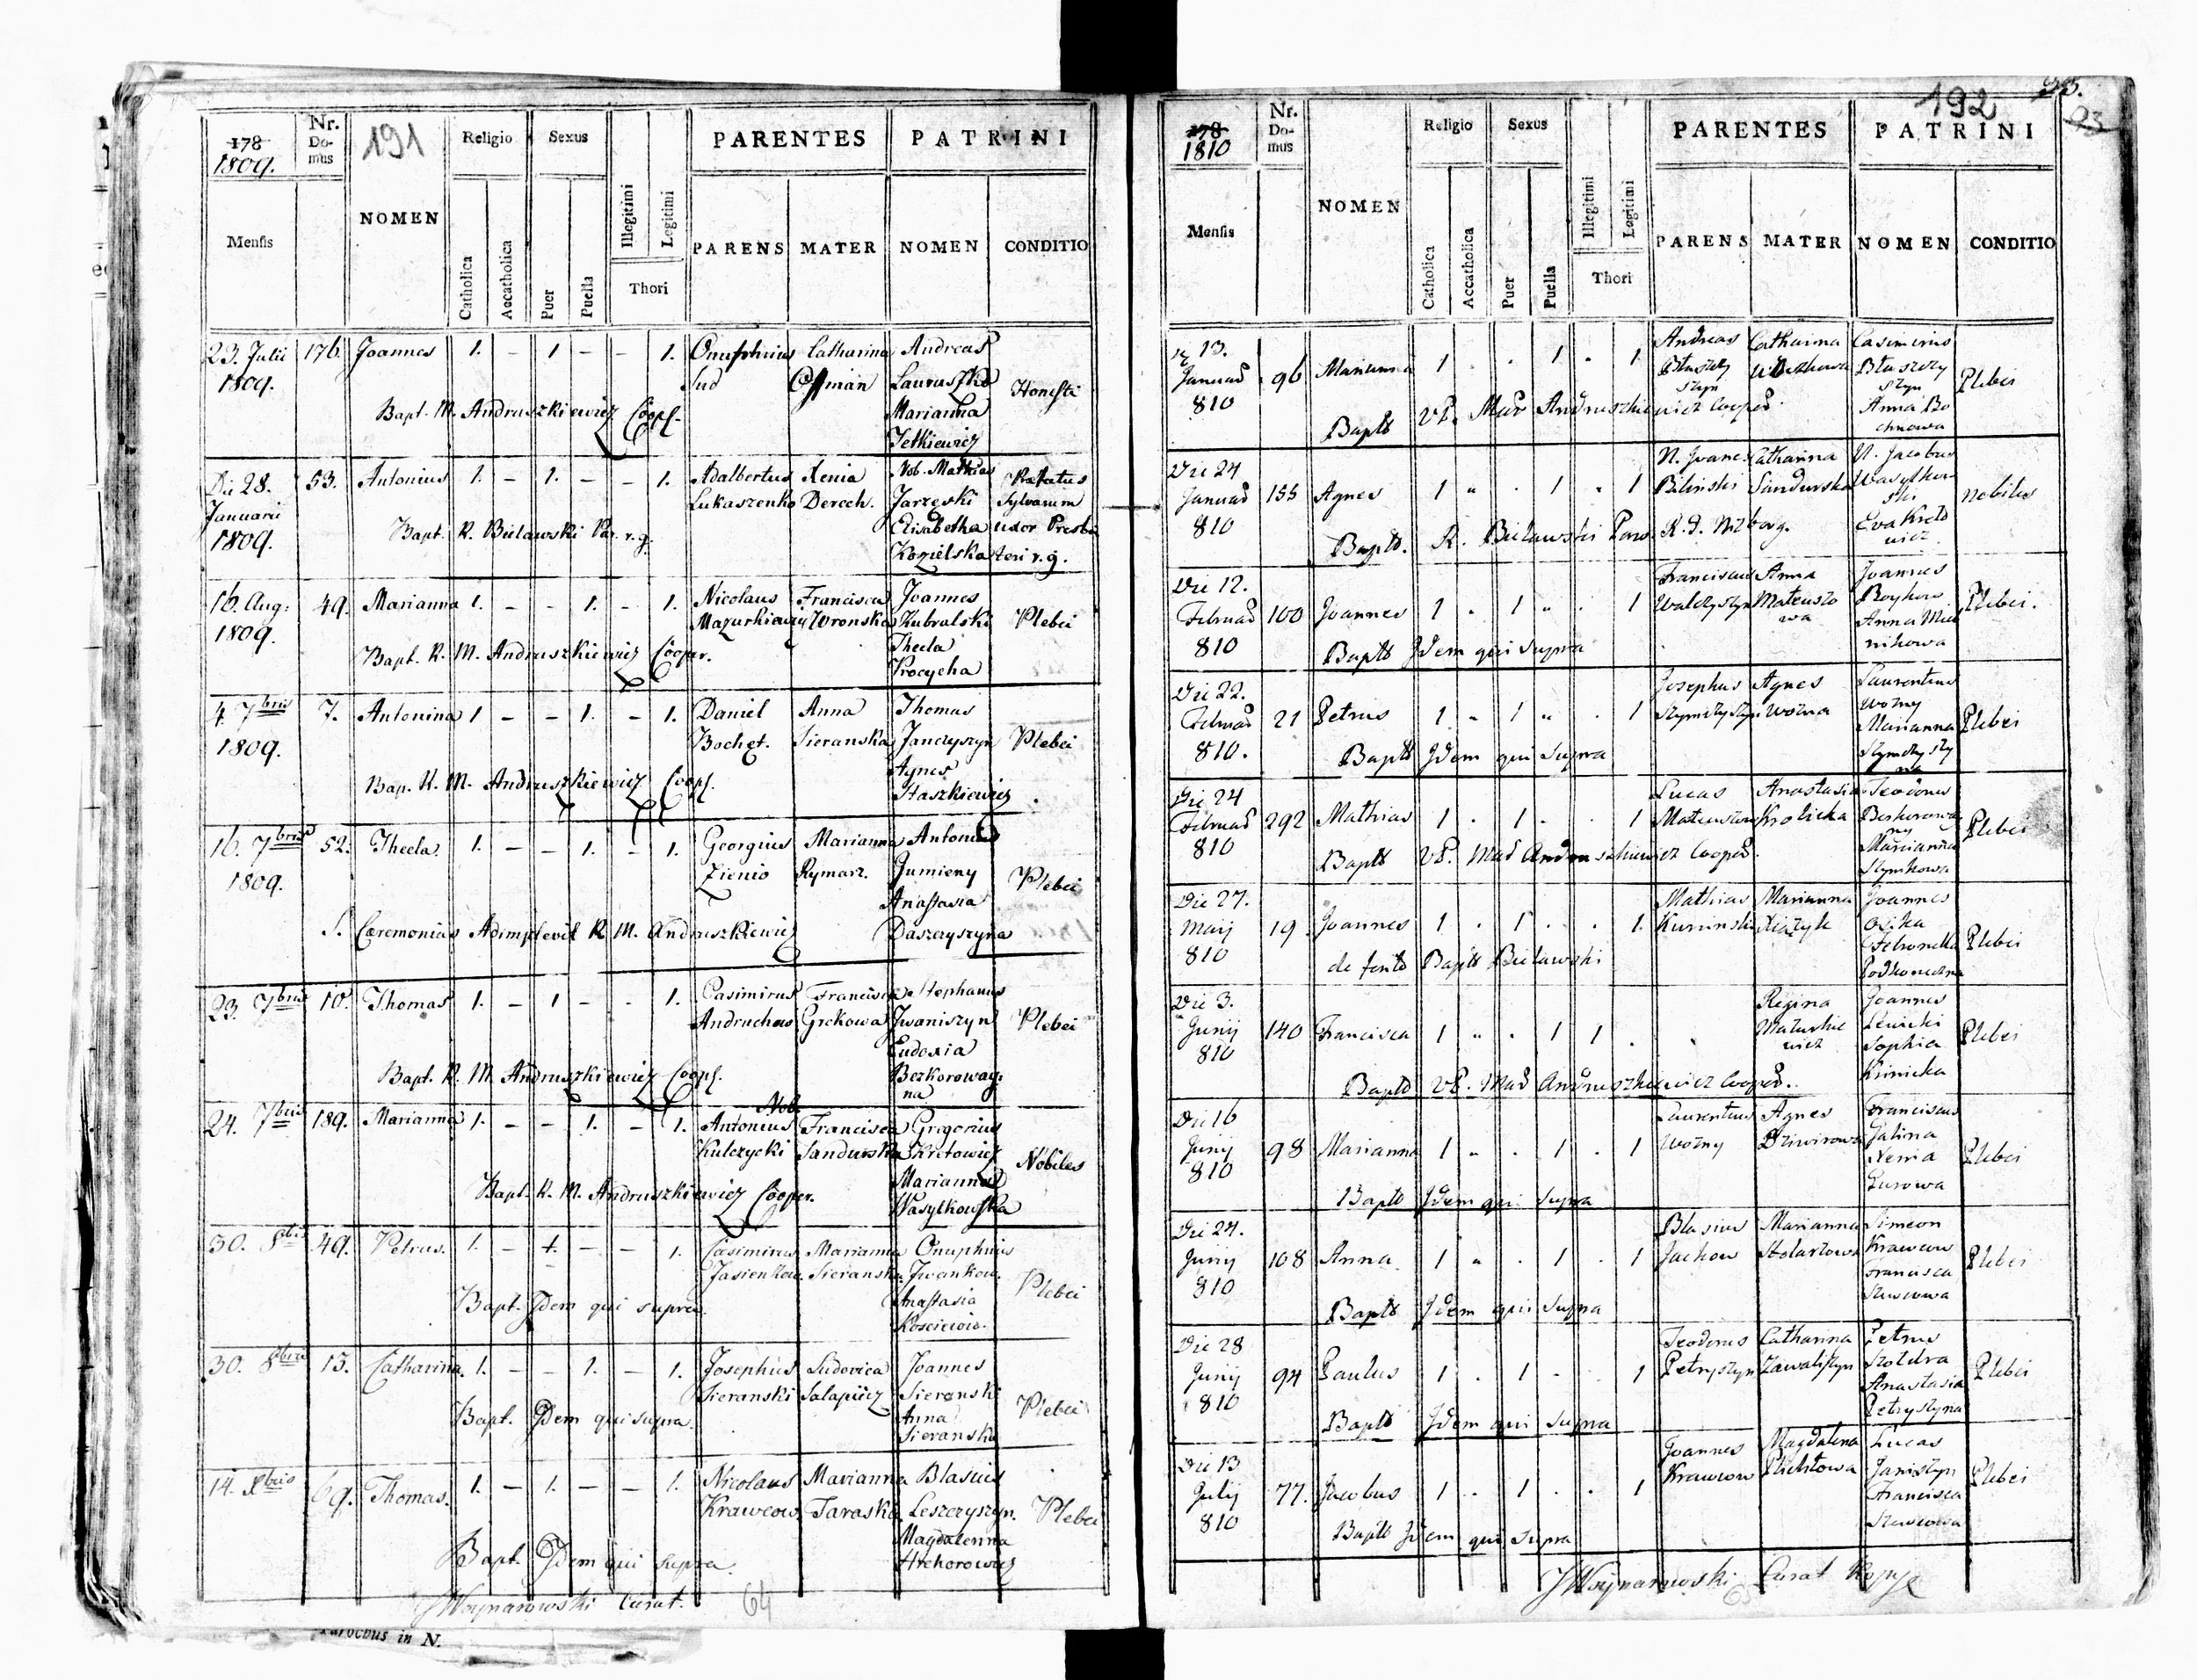 191
178
1809.
Nr. Domus
NOMEN
Religio
Sexus
PARENTES
PATRINI
Mensis
Catholica
Accatholica
Puer
Puella
Illegitimi
Legitimi
Thori
PARENS
MATER
NOMEN
CONDITIO
23. Julii 176. Joannes 1. – 1 – – 1. Onuphrius Catharina Andreas
1809. Sud Laruszko Honesti
Bapt. M. Andruszkiewicz Coop. Marianna
Jetkiewicz
Die 28. 53. Antonius 1. – 1. – – 1. Adalbertus Xenia Nob. Mathias
Januarii Lukaszenko Derech. Jarzeski Sylvarum
1809. Bapt. R. Bielawski Par. r. g. Elisabetha uxor Presby
Kozielska teri r. g.
16. Aug: 49. Marianna 1. – – 1. – 1. Nicolaus Francisca Joannes
1809. Mazurkiewicz Wronska Kubalski Plebei
Bapt. R. M. Andruszkiewicz Cooper. Thecla
Procycha
4. 7bris 7. Antonina 1 – – 1. – 1. Daniel Anna Thomas
1809. Bochet. Sieranska Janczyszyn Plebei
Bap. R. M. Andruszkiewicz Coop. Agnes
Staszkiewicz
16. 7bris 52. Thecla. 1. – – 1. – 1. Georgius Marianna Antonius
1809. Zienio Rymarz. Gumieny Plebei
Anastasia
S. Caeremonias Adimplevit R. M. Andruszkiewicz Daszczyszyna
23. 7bris 10. Thomas 1. – 1 – – 1. Casimirus Francisca Stephanus
Andruchow Grekowa Iwaniszyn Plebei
Eudoxia
Bapt. R. M. Andruszkiewicz Coop. Bezkorowaj
na
24. 7bris 189. Marianna 1. – – 1. – 1. Nob. Antonius Francisca Gregorius
Kulczycki Sandurska Kretowicz Nobiles
Bapt. R. M. Andruszkiewicz Cooper. Marianna
Wasylkowska
30. 8bris 49. Petrus. 1. – 1. – – 1. Casimirus Marianna Onuphrius
Jasienkow Sieranska Iwankow. Plebei
Bapt. Idem qui supra. Anastasia
30. 8bris 13. Catharina. 1. – – 1. – 1. Josephus Ludovica Joannes
Sieranski Salapicz Sieranski Plebei
Bapt. Idem qui supra. Anna
Sieranska
14. Xbris 69. Thomas. 1. – 1. – – 1. Nicolaus Marianna Blasius
Krawcow Taraska Leszczyszyn. Plebei
Bapt. Idem qui supra. Magdalenna
Hrehorowicz
JWoynarowski Curat.
64
Parochus in N.
192
23.
93
178
1810
Nr. Domus
NOMEN
Religio
Sexus
PARENTES
PATRINI
Mensis
Catholica
Accatholica
Puer
Puella
Illegitimi
Legitimi
Thori
PARENS
MATER
NOMEN
CONDITIO
13. Andreas Catharina Casimirus
Januar 96 Marianna 1 . . 1 . 1 Błaszczy Błaszczy Plebei
810 szyn szyn
Anna Bo
Bapt VR. Mar Andruszkiewicz Cooper chnowa
Die 24 N. Joanes Catharina N. Jacobus
Januar 155 Agnes 1 . . 1 . 1 Bilinski Sandurska Wasylkow nobiles
810 ski
Bapt. R. Bielawski Eva Kreto
wicz
Die 12. Franciscus Anna Joannes
Februar 100 Joannes 1 . 1 . . 1 Walczyszyn Mateuszo Boykow Plebei.
810 Bapt Idem qui supra wa Anna
nikowa
Die 22. Josephus Agnes Laurentius
Februar 21 Petrus 1 . 1 . . 1 Szymczyszyn Wozna Wozny Plebei
810. Bapt Idem qui supra Marianna
Szymczyszy
na
Die 24 Lucas Anastasia Teodorus
Februar 292 Mathias 1 . 1 . . 1 Mateuszow Krolicka Beskorowa Plebei
810 ny
Bapt VR. Mar Andruszkiewicz Cooper. Marianna
Die 27. Mathias Marianna Joannes
Maij 19 Joannes 1 . 1 . . 1. Kuminski Plebei
810 Petronella
de fonte Bapt Bielawski Podkoniczna
Die 3. Regina Joannes
Junij 140 Francisca 1 . . 1 1 . Maturkie Lewicki Plebei
810 wicz Sophia
Bapt VR. Mar Andruszkiewicz Cooper. Krinicka
Die 16 Laurentius Agnes Franciscus
Junij 98 Marianna 1 . . 1 . 1 Wozny Dziwirowa Galina Plebei
810 Xenia
Bapt Idem qui supra Gurowa
Die 24. Blasius Marianna Simeon
Junij 108 Anna 1 . . 1 . 1 Jachow Stolarzowa Krawcow Plebei
810 Francisca
Bapt Idem qui supra Szewcowa
Die 28 Teodorus Catharina Petrus
Junij 94 Paulus 1 . 1 . . 1 Petryszyn Zawaliszyn Szoldra Plebei
810 Anastasia
Bapt Idem qui supra Petryszyna
Die 13 Joannes Magdalena Lucas
July 77. Jacobus 1 . 1 . . 1 Krawcow Janiszyn Plebei
810 Francisca
Bapt Idem qui supra Szewcowa
JWoynarowski Curat
65